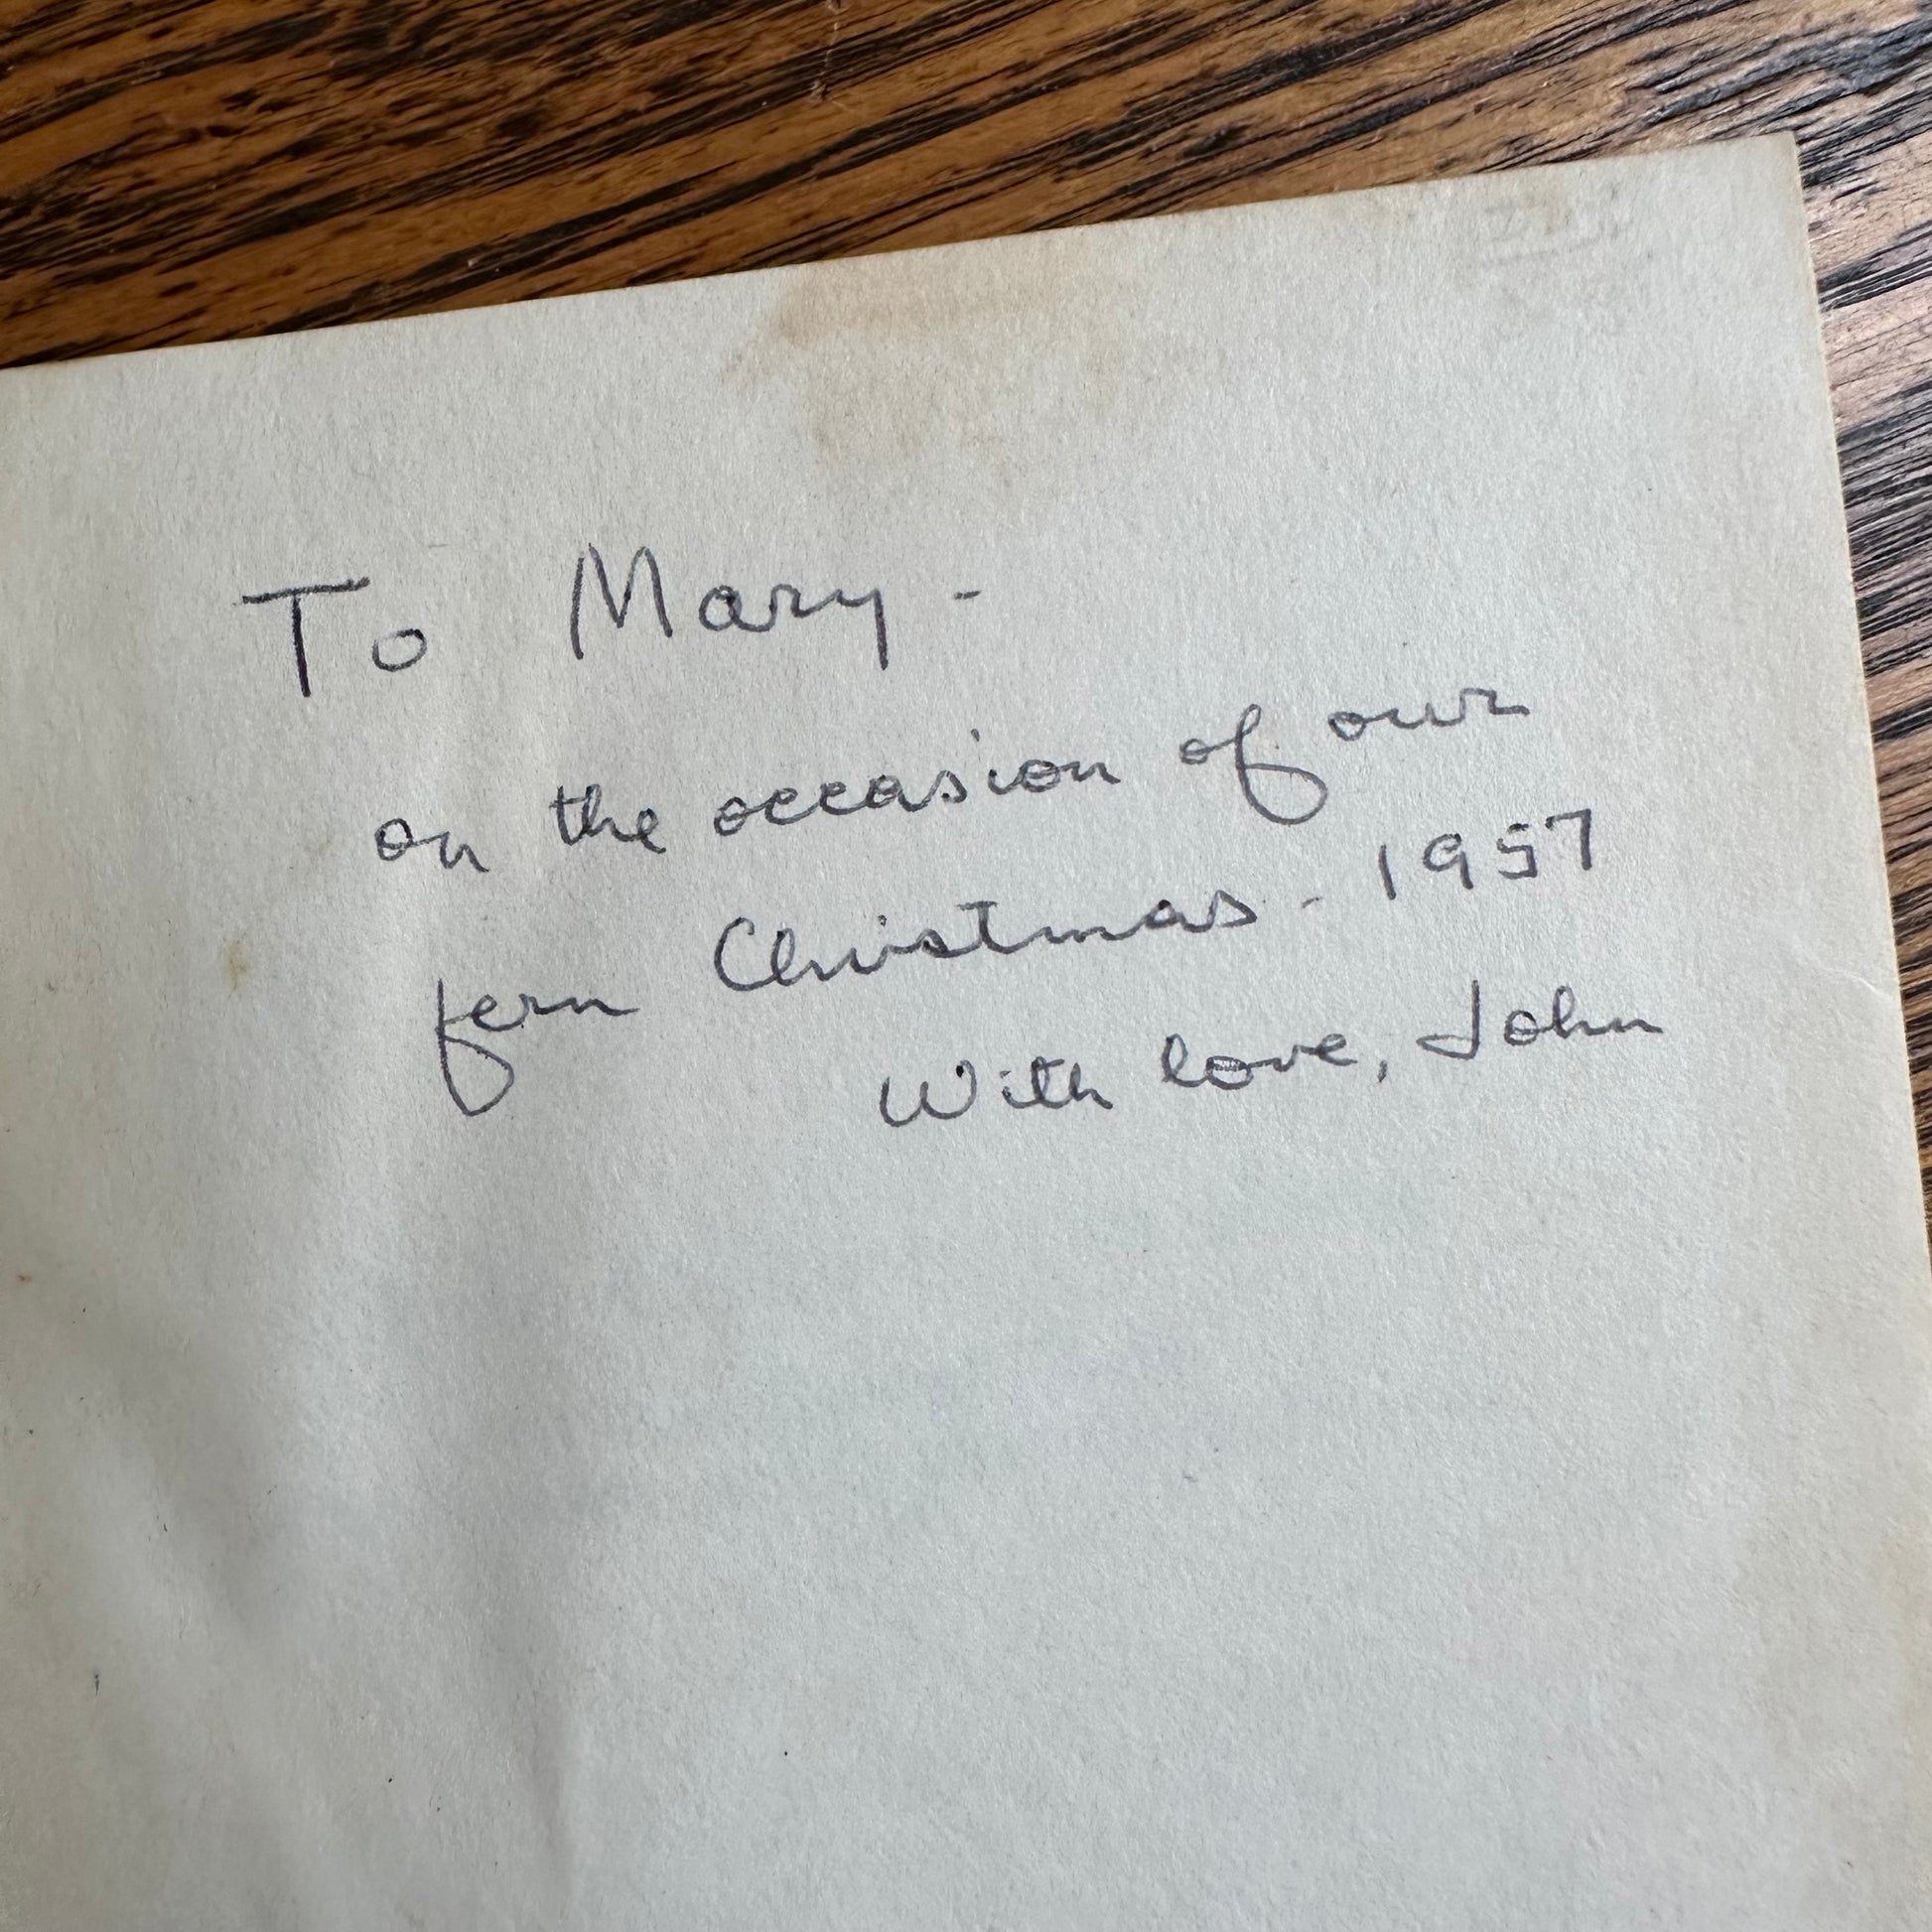 To Mary -
on the occasion of our
fern Christmas - 1957
With love, John